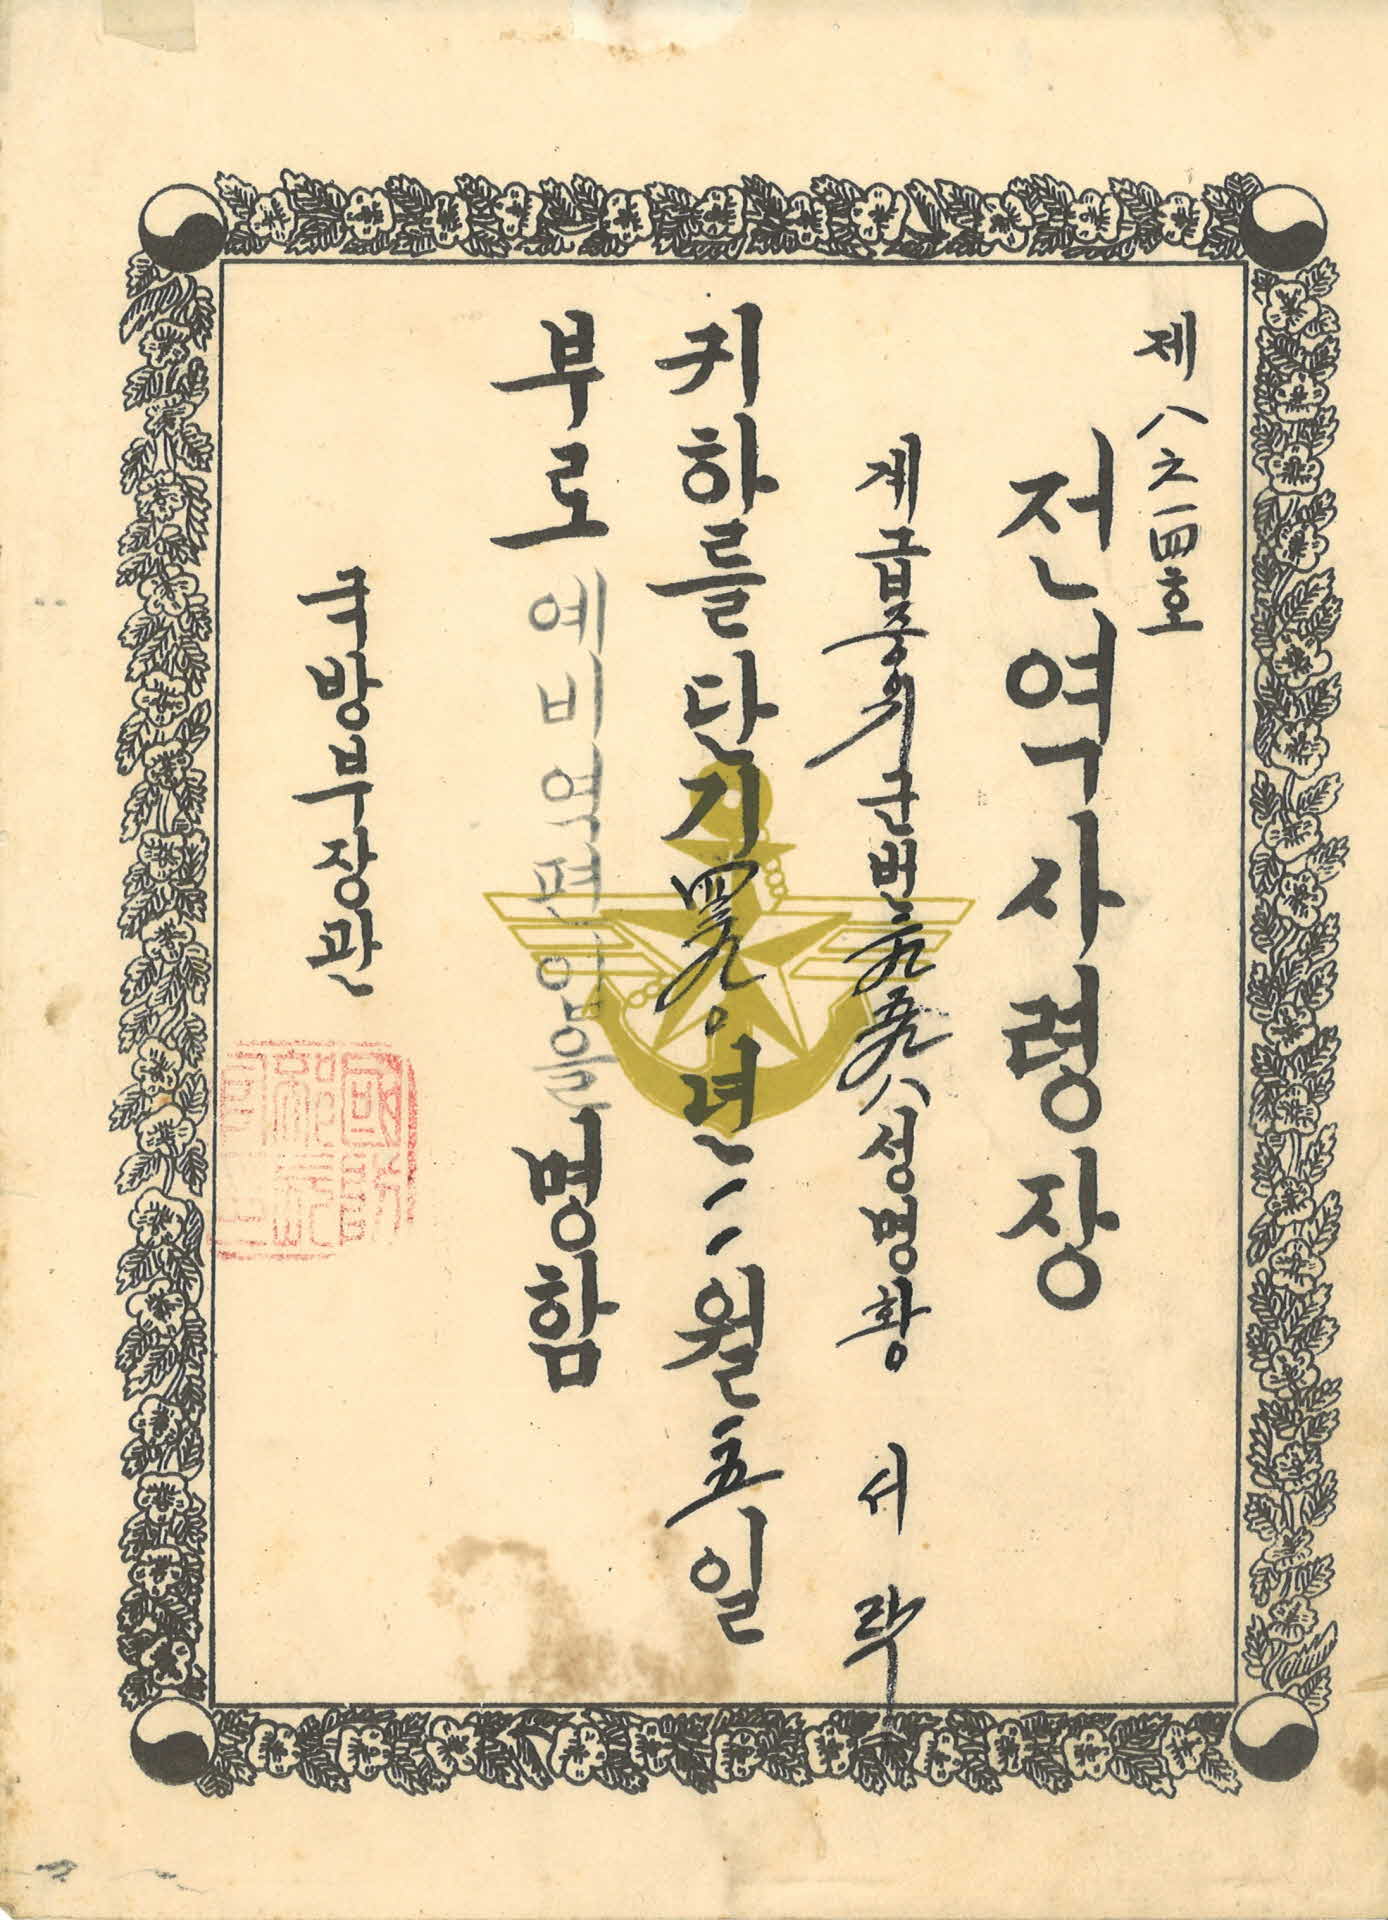 제八之一四호
전역사령장
계급중위군번 성명황 서 락
귀하를단기四二九〇년二월五일
부로예비역편입을명함
국방부장관
國防部長官之印